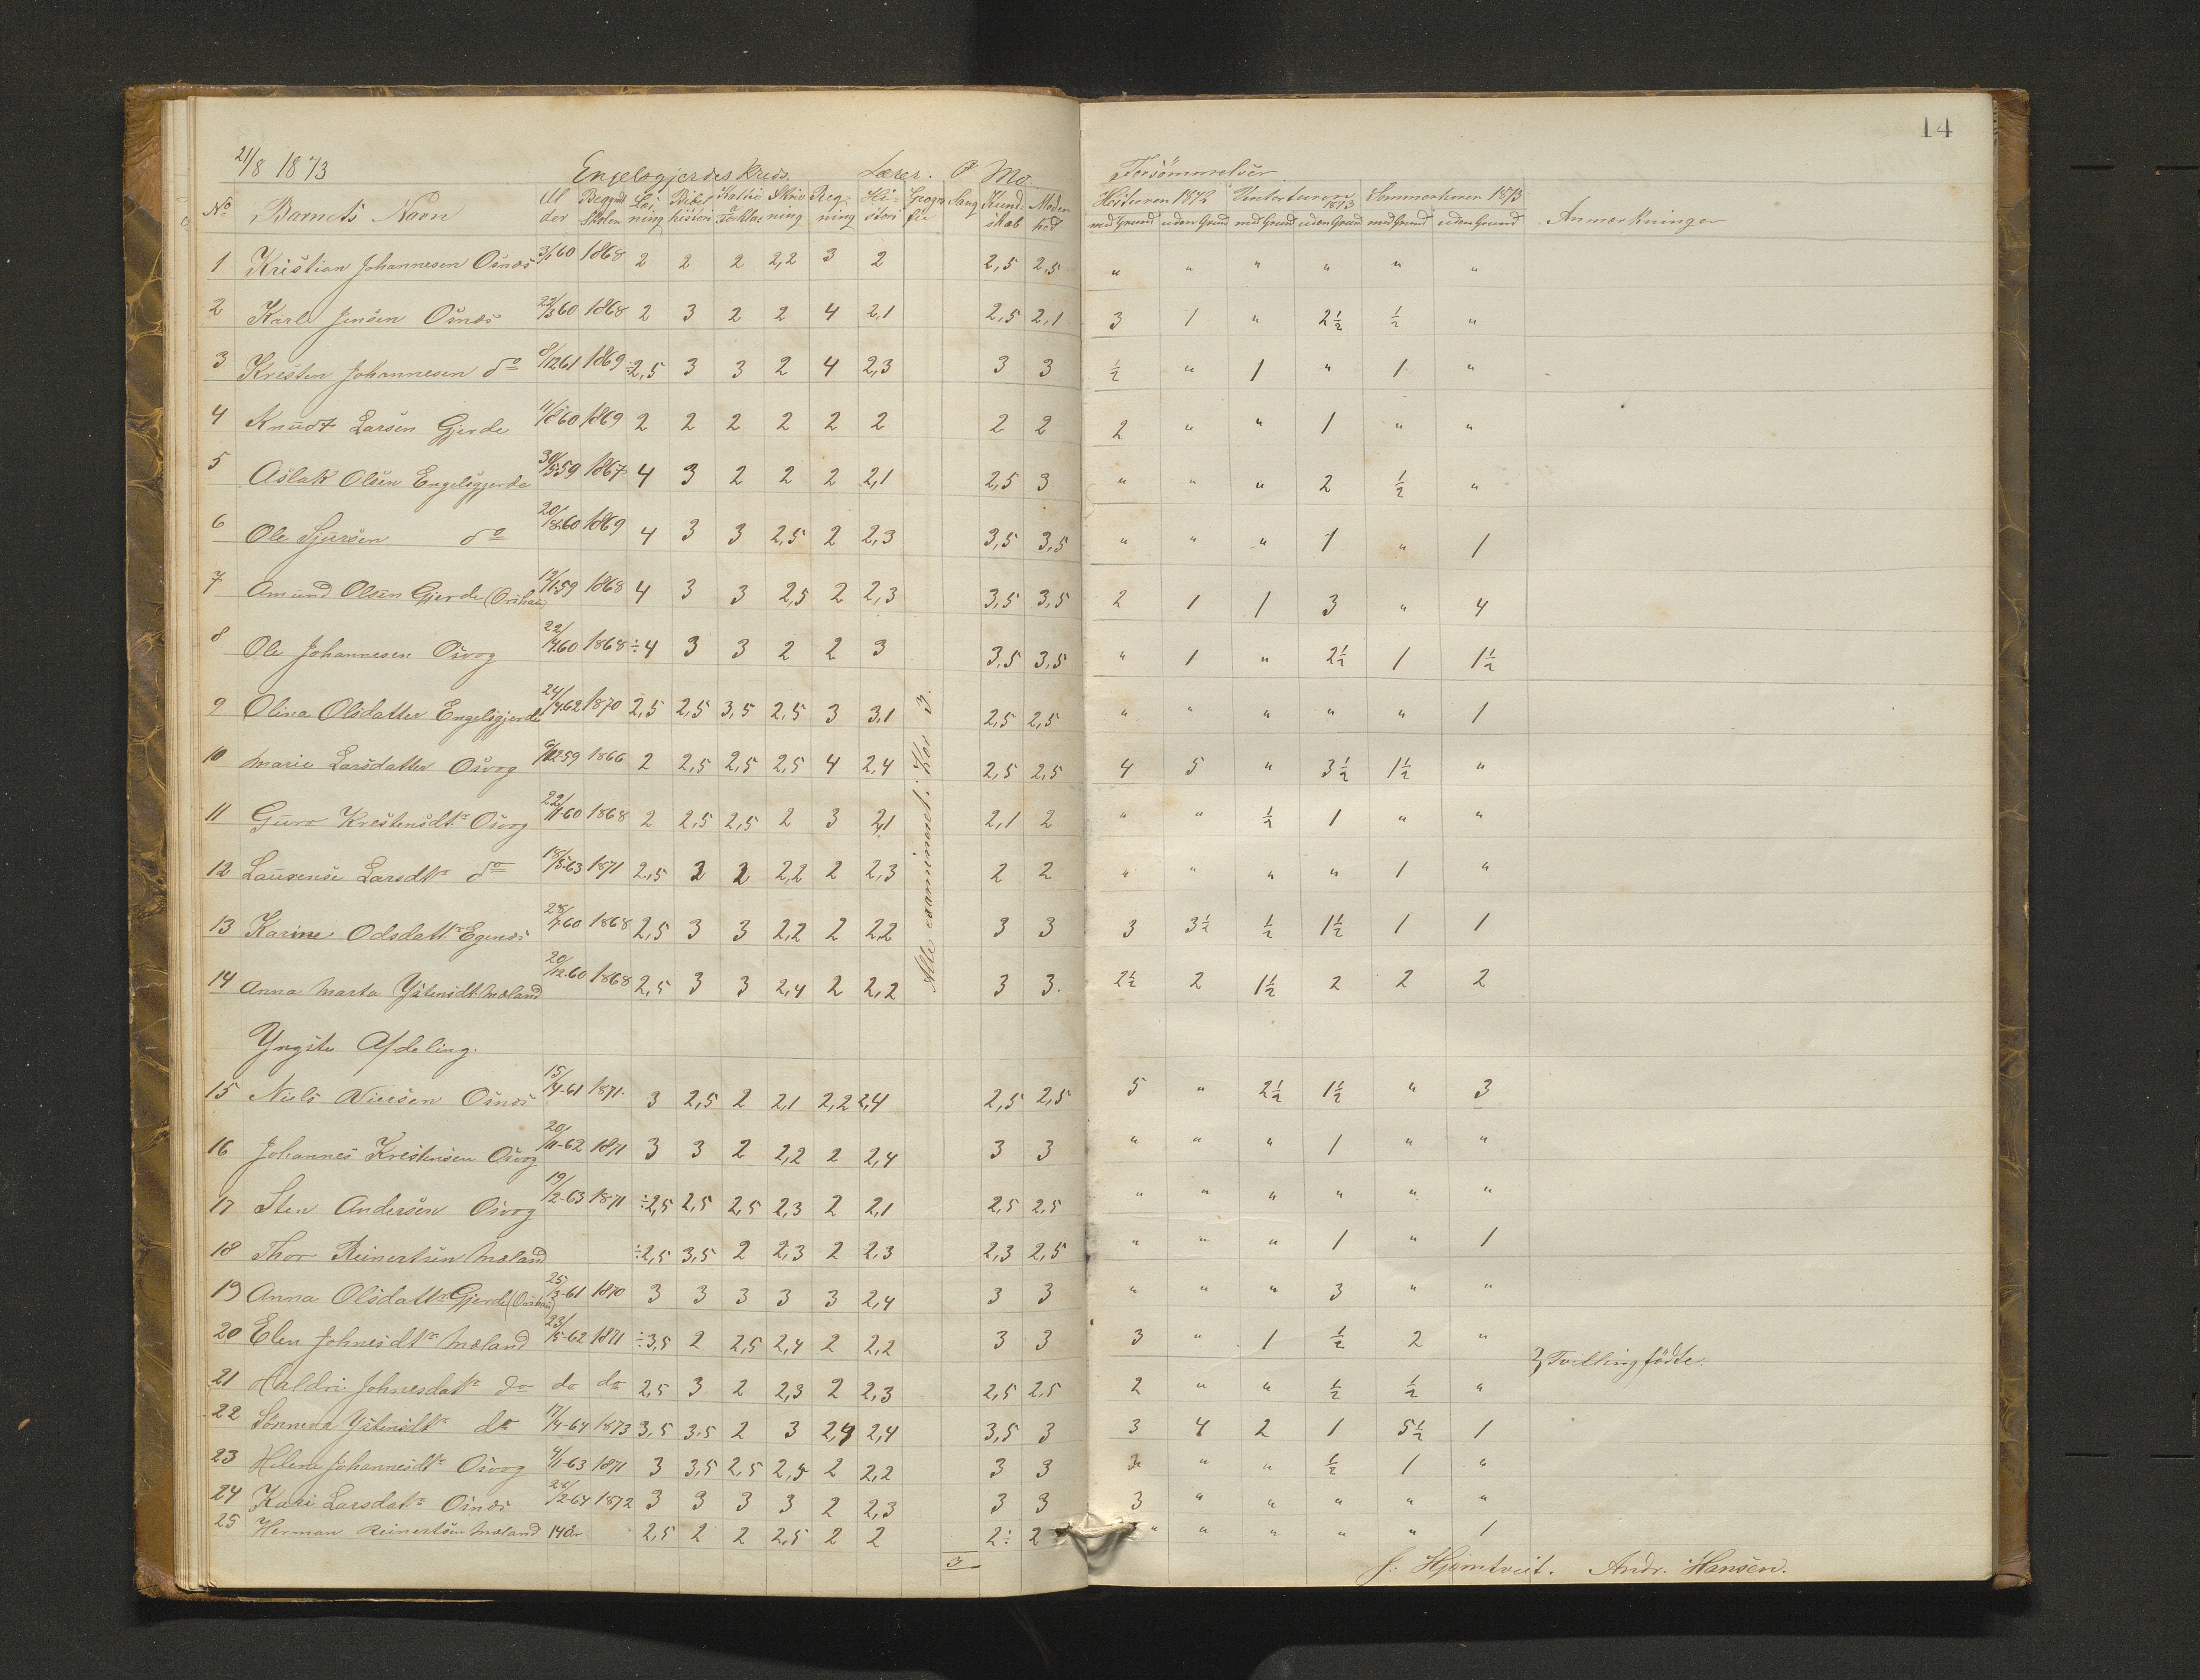 14
21/8 1873 Engelsgjerdes Kreds. Lærer. P Mo. Forsömmelser
No Barnets Navn Al der Begynt Skolen Læs ning Bibel histori Katki & Forklar Skriv ning Reg- ning Hi- stori Geogra fie Sang Kund- skab Moden hed Höstturen 1872 Vinterturen 1873 Sommerturen 1873 Anmærkninger
med Grund uden Grund med Grund uden Grund med Grund uden Grund
1 Kristian Johannesen Osnæs 3/1 60 1868 2 2 2 2,2 3 2 2,5 2,5 " " " " " "
2 Karl Jensen Osnæs 22/3 60 1868 2 3 2 2 4 2,1 2,5 2,1 3 1 " 2½ ½ "
3 Kresten Johannesen do 8/12 61 1869 ÷2,5 3 3 2 4 2,3 3 3 ½ " 1 " 1 "
4 Knudt Larsen Gjerde 11/8 60 1869 2 2 2 2 2 2 2 2 2 " " 1 " "
5 Aslak Olsen Engelsgjerde 30/5 59 1867 4 3 2 2 2 2,1 2,5 3 " " " 2 ½ "
6 Ole Sjursen do 20/ 60 1869 4 3 3 2,5 2 2,3 3,5 3,5 " " " 1 " 1
7 Amund Olsen Gjerde 12/1 59 1868 4 3 3 2,5 2 2,3 3,5 3,5 2 1 1 3 " 4
8 Ole Johannesen Osvog 22/4 60 1868 ÷4 3 3 2 2 3 3,5 3,5 " 1 " 2½ 1 1½
9 Olina Olsdatter Engelsgjerde 24/4 62 1870 2,5 2,5 3,5 2,5 3 3,1 2,5 2,5 " " " " " 1
10 Marie Larsdatter Osvog 59 1866 2 2,5 2,5 2,5 4 2,4 2,5 2,5 4 5 " 3½ 1½ "
11 Guro Krestensdtr Osvog 22/11 60 1868 2 2,5 2,5 2 3 2,1 2,1 2 " " ½ 1 " "
12 Laurense Larsdtr do 18/5 63 1871 2,5 2 2 2,2 2 2,3 2 2 " " " " 1 "
13 Karine Odsdattr Egenæs 28/7 60 1868 2,5 3 3 2,2 2 2,2 3 3 3 3½ ½ 1½ 1 1
14 Anna Marta Ystensdt Mæland 20/12 60 1868 2,5 3 3 2,4 2 2,2 3 3. 2½ 2 1½ 2 2 2
Alle examineret: Kar 3.
Yngste Afdeling.
15 Niels Nielsen Osnæs 15/4-61 1871. 3 2,5 2 2,1 2,2 2,4 2,5 2,5 5 " 2½ 1½ " 3
16 Johannes Krestensen Osvog 20/11-62 1871 3 3 2 2,2 2 2,4 3 3 " " " 1 " "
17 Sten Andersen Osvog 19/2-63 1871 ÷2,5 2,5 2,5 2,3 2 2,1 2,5 2,5 " " " " " "
18 Thor Reinertsen Mæland ÷2,5 3,5 2 2,3 2 2,3 2,3 2,5 " " " 1 " 1
19 Anna Olsdattr Gjerde 25/3-61 1870 3 3 3 3 3 2,4 3 3 " " " 3 " "
20 Elen Johnesdtr Mæland 23/5-62 1871 ÷3,5 2 2,5 2,4 2 2,2 3 3 3 " 1 ½ 2 "
} Tvillingfödte.
21 Haldri Johnesdatr do do do 2,5 3 2 2,3 2 2,3 2,5 2,5 2 " " ½ ½ "
22 Sönneva Ystensdtr do 17/4-64 1873 3,5 3,5 2 3 2,4 2,4 3,5 3 3 4 2 1 5½ 1
23 Helene Johannesdtr Osvog 4/1-63 1871 3 3,5 2,5 2,5 2 2,2 3 3 3 " " ½ 1 "
24 Kari Larsdatr Osnæs 28/2-64 1872 3 3 3 3 2 2,3 3 3 3 " " " " "
25 Herman Reinertsen Mæland 14 år 2,5 2 2 2,5 2 2 2÷ 2 " " " " " 1
3
J. Hjemtveit. Andr. Hansen.